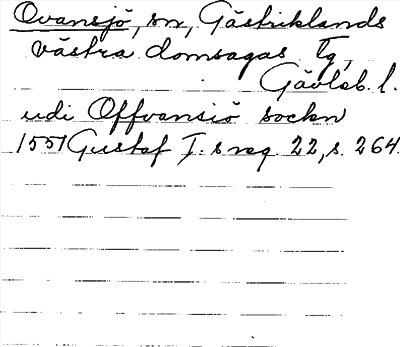 Ovansjö, sn, Gästriklands
västra domsagas Tg,
Gävleb. l.
udi Offvansiö sockn
1551 Gustaf I. s reg. 22, s. 264.